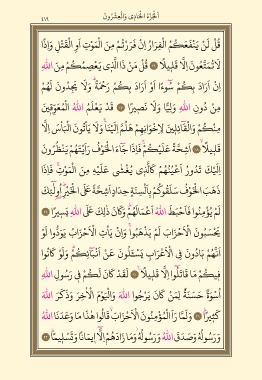 ٤١٩ اَلْجُزْءُ الْحَادِى وَالْعِشْرُونَ
قُلْ لَنْ يَنْفَعَكُمُ الْفِرَارُ اِنْ فَرَرْتُمْ مِنَ الْمَوْتِ اَوِ الْقَتْلِ وَاِذًا
لَا تُمَتَّعُونَ اِلَّا قَلِيلًا ﴿١٦﴾ قُلْ مَنْ ذَا الَّذِى يَعْصِمُكُمْ مِنَ اللّٰهِ
اِنْ اَرَادَ بِكُمْ سُٓوءًا اَوْ اَرَادَ بِكُمْ رَحْمَةً وَلَا يَجِدُونَ لَهُمْ
مِنْ دُونِ اللّٰهِ وَلِيًّا وَلَا نَصِيرًا ﴿١٧﴾ قَدْ يَعْلَمُ اللّٰهُ الْمُعَوِّقِينَ
مِنْكُمْ وَالْقَٓائِلِينَ لِاِخْوَانِهِمْ هَلُمَّ اِلَيْنَا وَلَا يَأْتُونَ الْبَأْسَ اِلَّا
قَلِيلًا ﴿١٨﴾ اَشِحَّةً عَلَيْكُمْ فَاِذَا جَٓاءَ الْخَوْفُ رَاَيْتَهُمْ يَنْظُرُونَ
اِلَيْكَ تَدُورُ اَعْيُنُهُمْ كَالَّذِى يُغْشٰى عَلَيْهِ مِنَ الْمَوْتِ فَاِذَا
ذَهَبَ الْخَوْفُ سَلَقُوكُمْ بِاَلْسِنَةٍ حِدَادٍ اَشِحَّةً عَلَى الْخَيْرِ اُو۬لٰٓئِكَ
لَمْ يُؤْمِنُوا فَاَحْبَطَ اللّٰهُ اَعْمَالَهُمْ وَكَانَ ذٰلِكَ عَلَى اللّٰهِ يَسِيرًا ﴿١٩﴾
يَحْسَبُونَ الْاَحْزَابَ لَمْ يَذْهَبُوا وَاِنْ يَأْتِ الْاَحْزَابُ يَوَدُّوا لَوْ
اَنَّهُمْ بَادُونَ فِى الْاَعْرَابِ يَسْـَٔلُونَ عَنْ اَنْبَٓائِكُمْ وَلَوْ كَانُوا
فِيكُمْ مَا قَاتَلُٓوا اِلَّا قَلِيلًا ﴿٢٠﴾ لَقَدْ كَانَ لَكُمْ فِى رَسُولِ اللّٰهِ
اُسْوَةٌ حَسَنَةٌ لِمَنْ كَانَ يَرْجُوا اللّٰهَ وَالْيَوْمَ الْاٰخِرَ وَذَكَرَ اللّٰهَ
كَثِيرًا ﴿٢١﴾ وَلَمَّا رَاَ الْمُؤْمِنُونَ الْاَحْزَابَ قَالُوا هٰذَا مَا وَعَدَنَا اللّٰهُ
وَرَسُولُهُ وَصَدَقَ اللّٰهُ وَرَسُولُهُ وَمَا زَادَهُمْ اِلَّٓا اِيمَانًا وَتَسْلِيمًا ﴿٢٢﴾